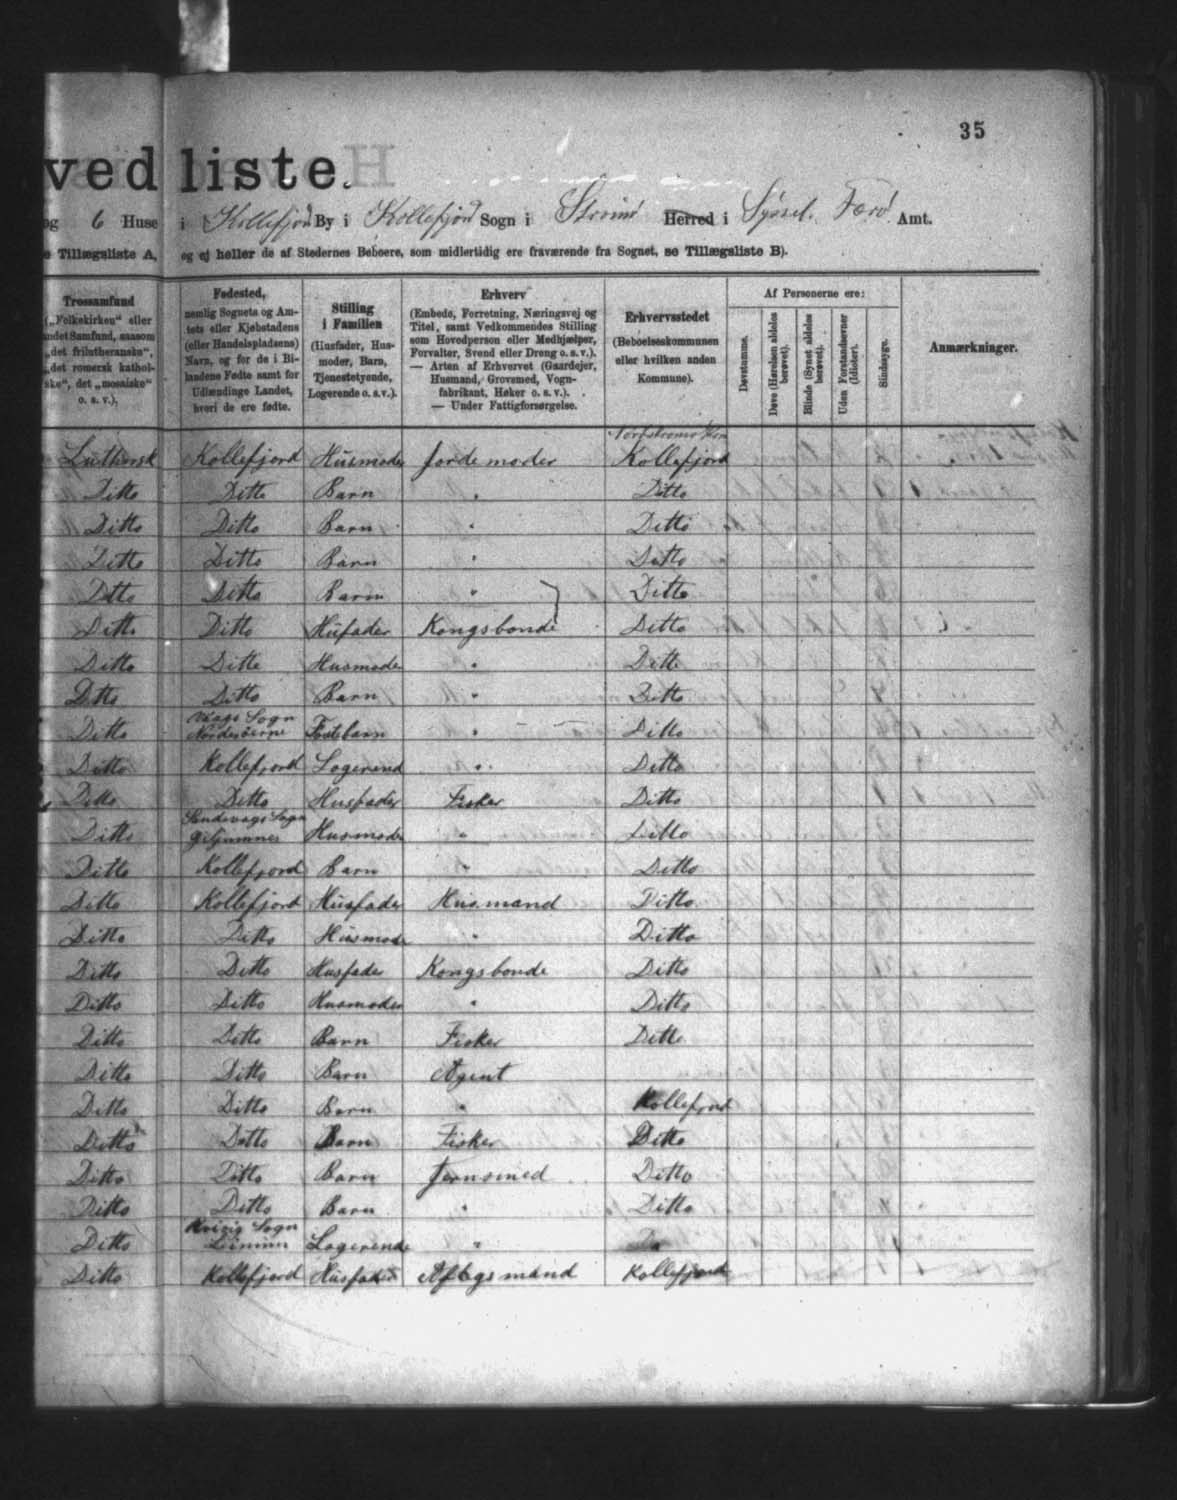 35
ved liste.
og 6 Huse i Kollefjord By i Kollefjord Sogn i Strömö Herred i Syssel. Færö Amt.
e Tillægsliste A, og ej heller de af Stedernes Beboere, som midlertidig ere fraværende fra Sognet, se Tillægsliste B).
Trossamfund
(„Folkekirken" eller
andet Samfund, saasom
„det frilutheranske",
„det romersk kathol-
ske", det „mosaiske"
o. s. v.).
Fødested,
nemlig Sognets og Am-
tets eller Kjøbstadens
(eller Handelspladsens)
Navn, og for de i Bi-
landene Fødte samt for
Udlændinge Landet,
hvori de ere fødte.
Stilling
i Familien
(Husfader, Hus-
moder, Barn,
Tjenestetyende,
Logerende o. s. v.).
Erhverv
(Embede, Forretning, Næringsvej og
Titel, samt Vedkommendes Stilling
som Hovedperson eller Medhjælper,
Forvalter, Svend eller Dreng o. s. v.).
— Arten af Erhvervet (Gaardejer,
Husmand, Grovsmed, Vogn-
fabrikant, Høker o. s. v.).
— Under Fattigforsørgelse.
Erhvervsstedet
(Beboelseskommunen
eller hvilken anden
Kommune).
Af Personerne ere:
Døvstumme.
Døve (Hørelsen aldeles
berøvet).
Blinde (Synet aldeles
berøvet).
Uden Forstandsevner
(Idioter).
Sindssyge.
Anmærkninger.
Luthersk Kollefjord Husmoder Jordemoder Kollefjord
Ditto Ditto Barn " Ditto
Ditto Ditto Barn " Ditto
Ditto Ditto Barn " Ditto
Ditto Ditto Barn " Ditto
Ditto Ditto Husfader Kongsbonde Ditto
Ditto Ditto Husmoder " Ditto
Ditto Ditto Barn " Ditto
Ditto Vaags Sogn Norderöerne Fostebarn " Ditto
Ditto Kollefjord Logerend " Ditto
Ditto Ditto Husfader Fisker Ditto
Ditto Sandevags Sogn Husmoder " Ditto
Ditto Kollefjord Barn " Ditto
Ditto Kollefjord Husfader Husmand Ditto
Ditto Ditto Husmoder " Ditto
Ditto Ditto Husfader Kongsbonde Ditto
Ditto Ditto Husmoder " Ditto
Ditto Ditto Barn Fisker Ditto
Ditto Ditto Barn Agent
Ditto Ditto Barn " Kollefjord
Ditto Ditto Barn Fisker Ditto
Ditto Ditto Barn Jernsmed Ditto
Ditto Ditto Barn " Ditto
Ditto Kvivig Sogn Logerende "
Ditto Kollefjord Husfader Aftægsmand Kollefjord